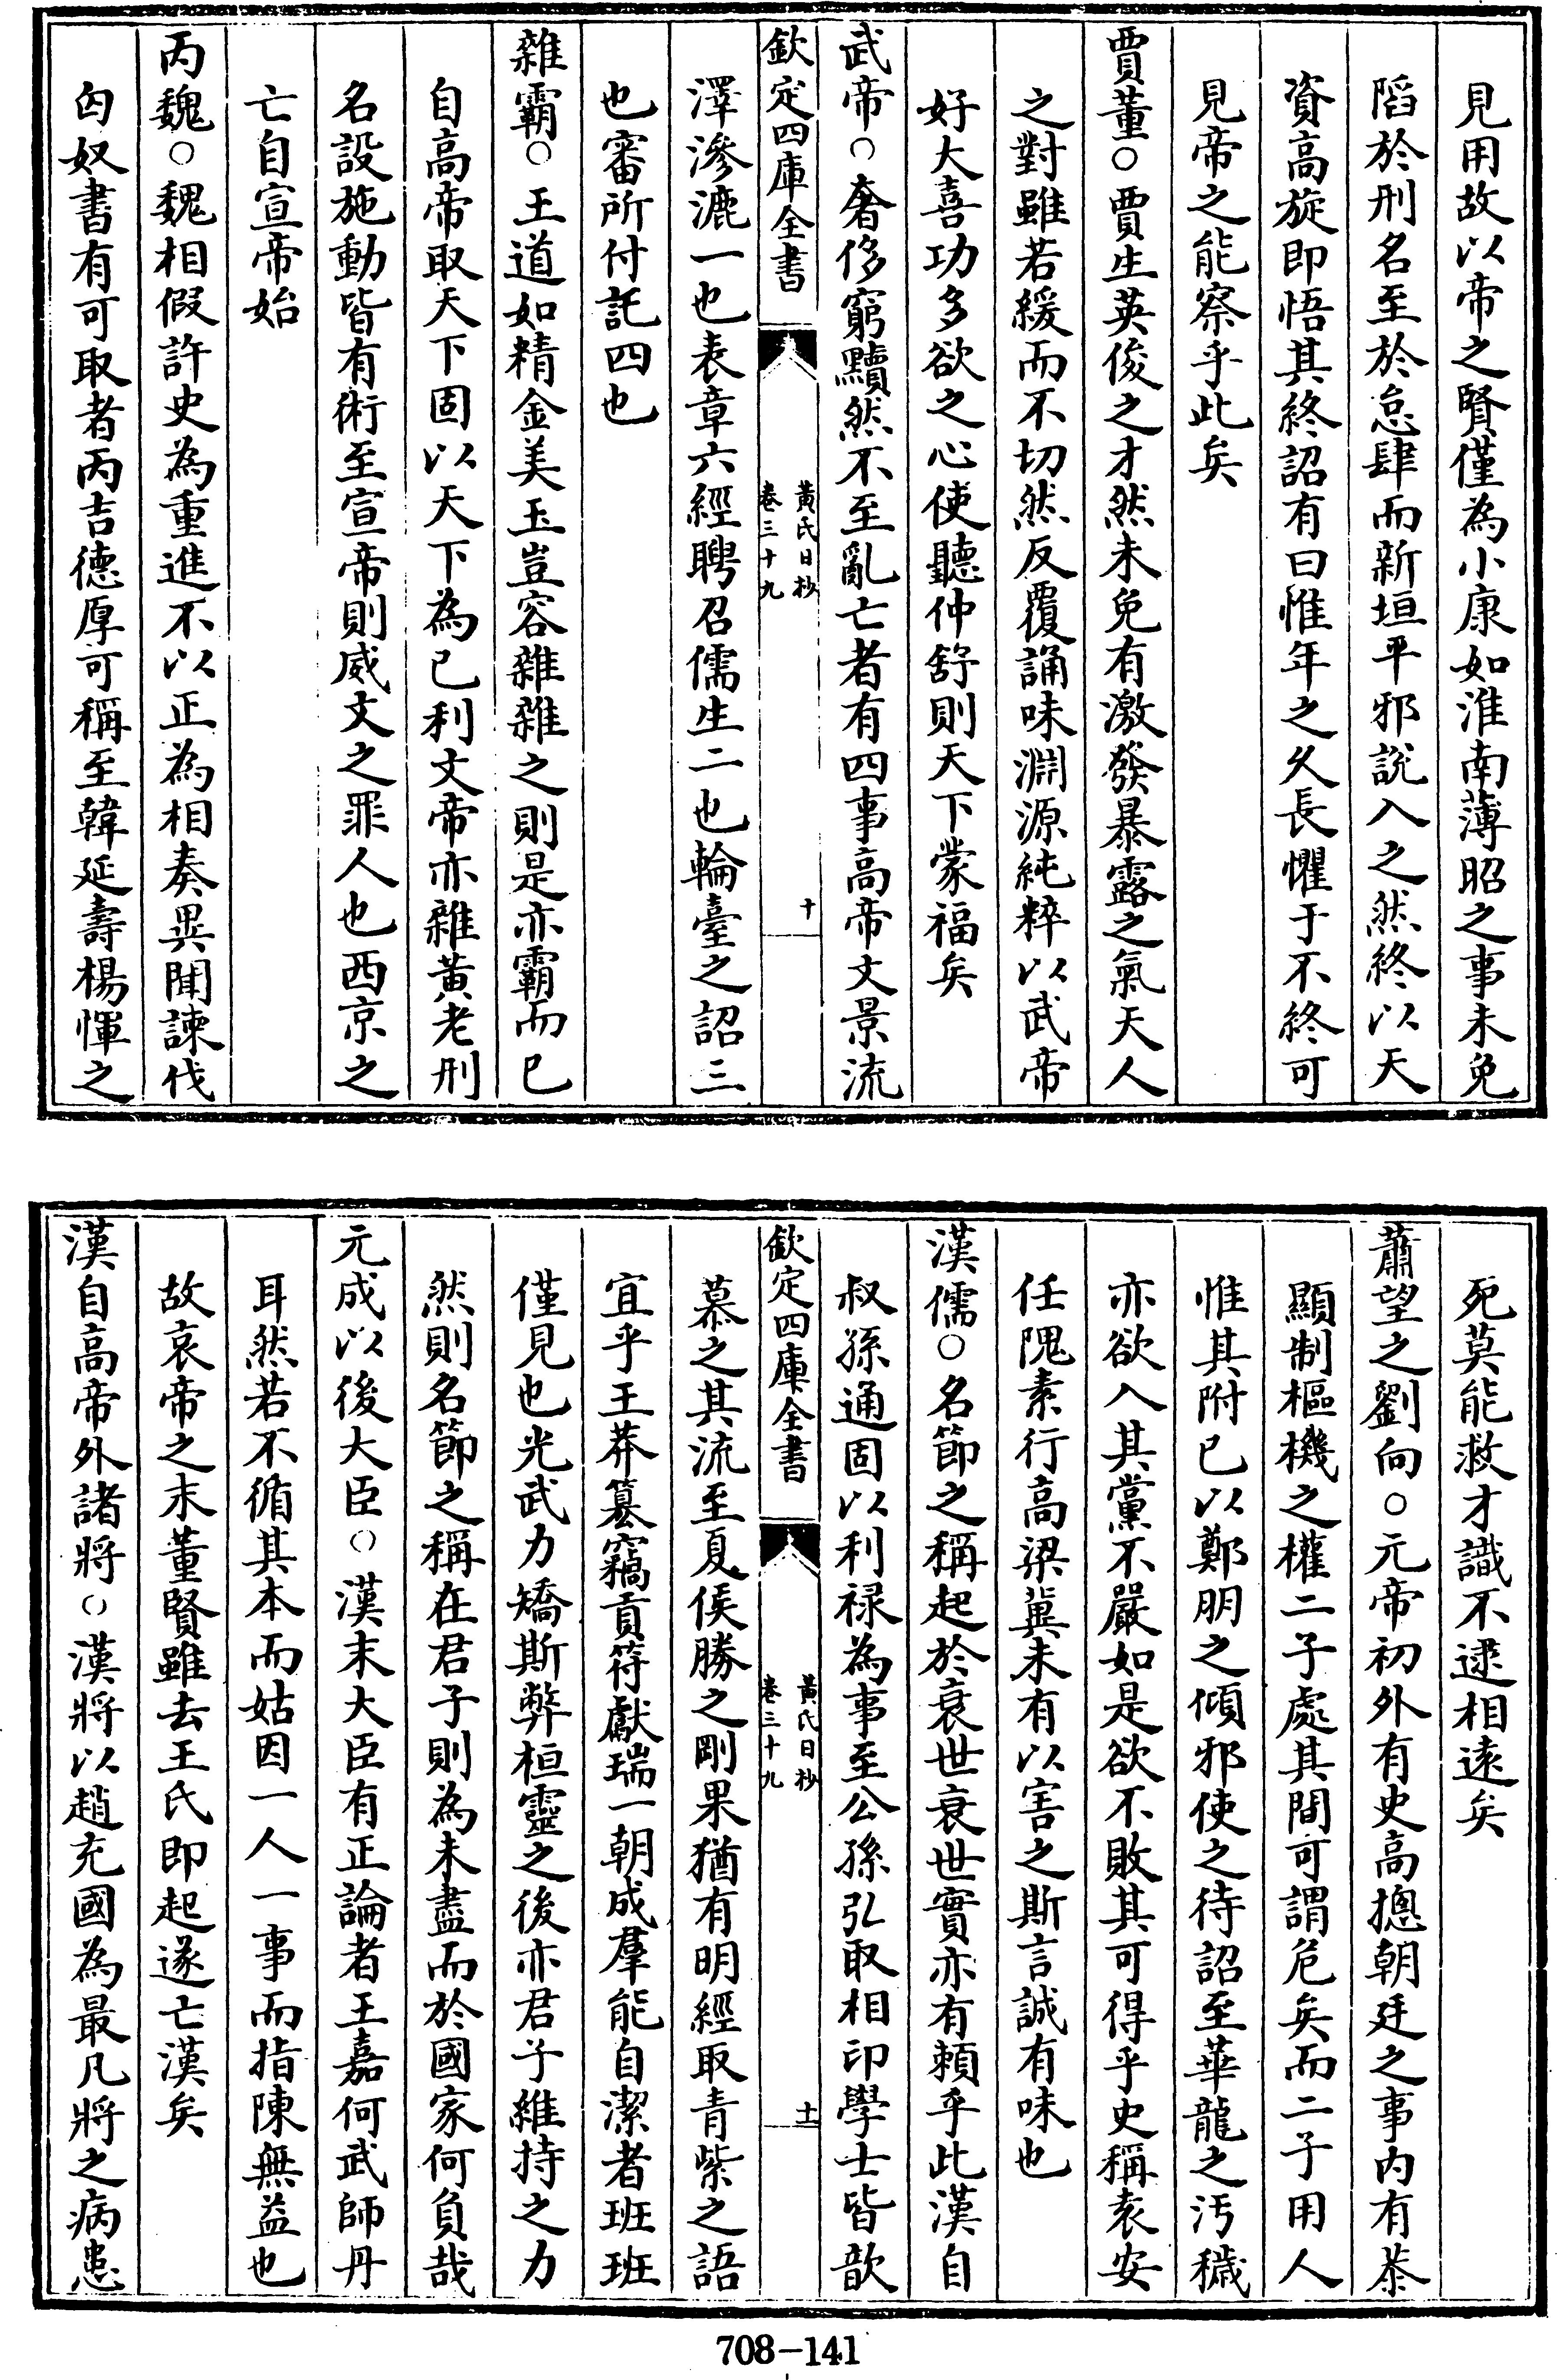 見用故以帝之賢僅為小康如淮南薄昭之事未免
陷於刑名至於怠肆而新垣平邪説入之然終以天
資高旋即悟其終詔有曰惟年之久長懼于不終可
見帝之能察乎此矣
賈董○賈生英俊之才然未免有激發暴露之氣天人
之對雖若緩而不切然反覆誦味淵源純粹以武帝
好大喜功多欲之心使聽仲舒則天下蒙福矣
武帝○奢侈窮黷然不至亂亡者有四事高帝文景流
欽定四庫全書
黃氏日抄
卷三十九
十
澤滲漉一也表章六經聘召儒生二也輪臺之詔三
也審所付託四也
雜霸○王道如精金美玉豈容雜雜之則是亦霸而已
自高帝取天下固以天下為已利文帝亦雜黃老刑
名設施動皆有術至宣帝則威文之罪人也西京之
亡自宣帝始
丙魏○魏相假許史為重進不以正為相奏異聞諫伐
匈奴書有可取者丙吉德厚可稱至韓延壽楊惲之
死莫能救才識不逮相遠矣
蕭望之劉向○元帝初外有史高摠朝廷之事内有恭
顯制樞機之權二子處其間可謂危矣而二子用人
惟其附已以鄭朋之傾邪使之待詔至華龍之汚穢
亦欲入其黨不嚴如是欲不敗其可得乎史稱袁安
任隗素行高梁冀未有以害之斯言誠有味也
漢儒○名節之稱起於衰世衰世實亦有賴乎此漢自
叔孫通固以利禄為事至公孫弘取相印學士皆歆
欽定四庫全書
黃氏日抄
卷三十九
十一
慕之其流至夏侯勝之剛果猶有明經取青紫之語
宜乎王莽簒竊貢符獻瑞一朝成羣能自潔者班班
僅見也光武力矯斯弊桓靈之後亦君子維持之力
然則名節之稱在君子則為未盡而於國家何負哉
元成以後大臣○漢末大臣有正論者王嘉何武師丹
耳然若不循其本而姑因一人一事而指陳無益也
故哀帝之末董賢雖去王氏即起遂亡漢矣
漢自高帝外諸將○漢將以趙充國為最凡將之病患
708-141